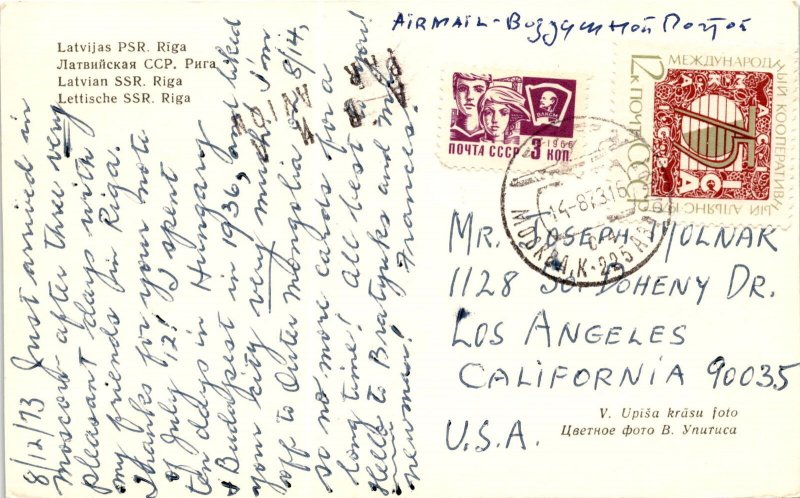 Latvijas PSR. Rīga
Латвийская ССР. Рига
Latvian SSR. Riga
Lettische SSR. Riga
8/12/73 Just arrived in
Moscow after three very
pleasant days with
my friends in Riga.
Thanks for your note
of July 12! I spent
ten days in Hungary
& Budapest in 1936, and liked
your city very much! I'm
off to Outer Mongolia 8/14,
so no more cards for a
long time! All best to you!
Hello to Bratyuks and Miss
Newman! Frances.
PAR AVION
AIRMAIL - Воздушной Почтой
ПОЧТА СССР 3 КОП.
1966
ВЛКСМ
МЕЖДУНАРОДНЫЙ КООПЕРАТИВНЫЙ АЛЬЯНС
12 К ПОЧТА СССР
МКА
ICA
14-8 73 16
МОСКВА, К-225
Mr. Joseph Molnak
1128 So. Doheny Dr.
Los Angeles
California 90035
U.S.A.
V. Upiša krāsu foto
Цветное фото В. Упитиса